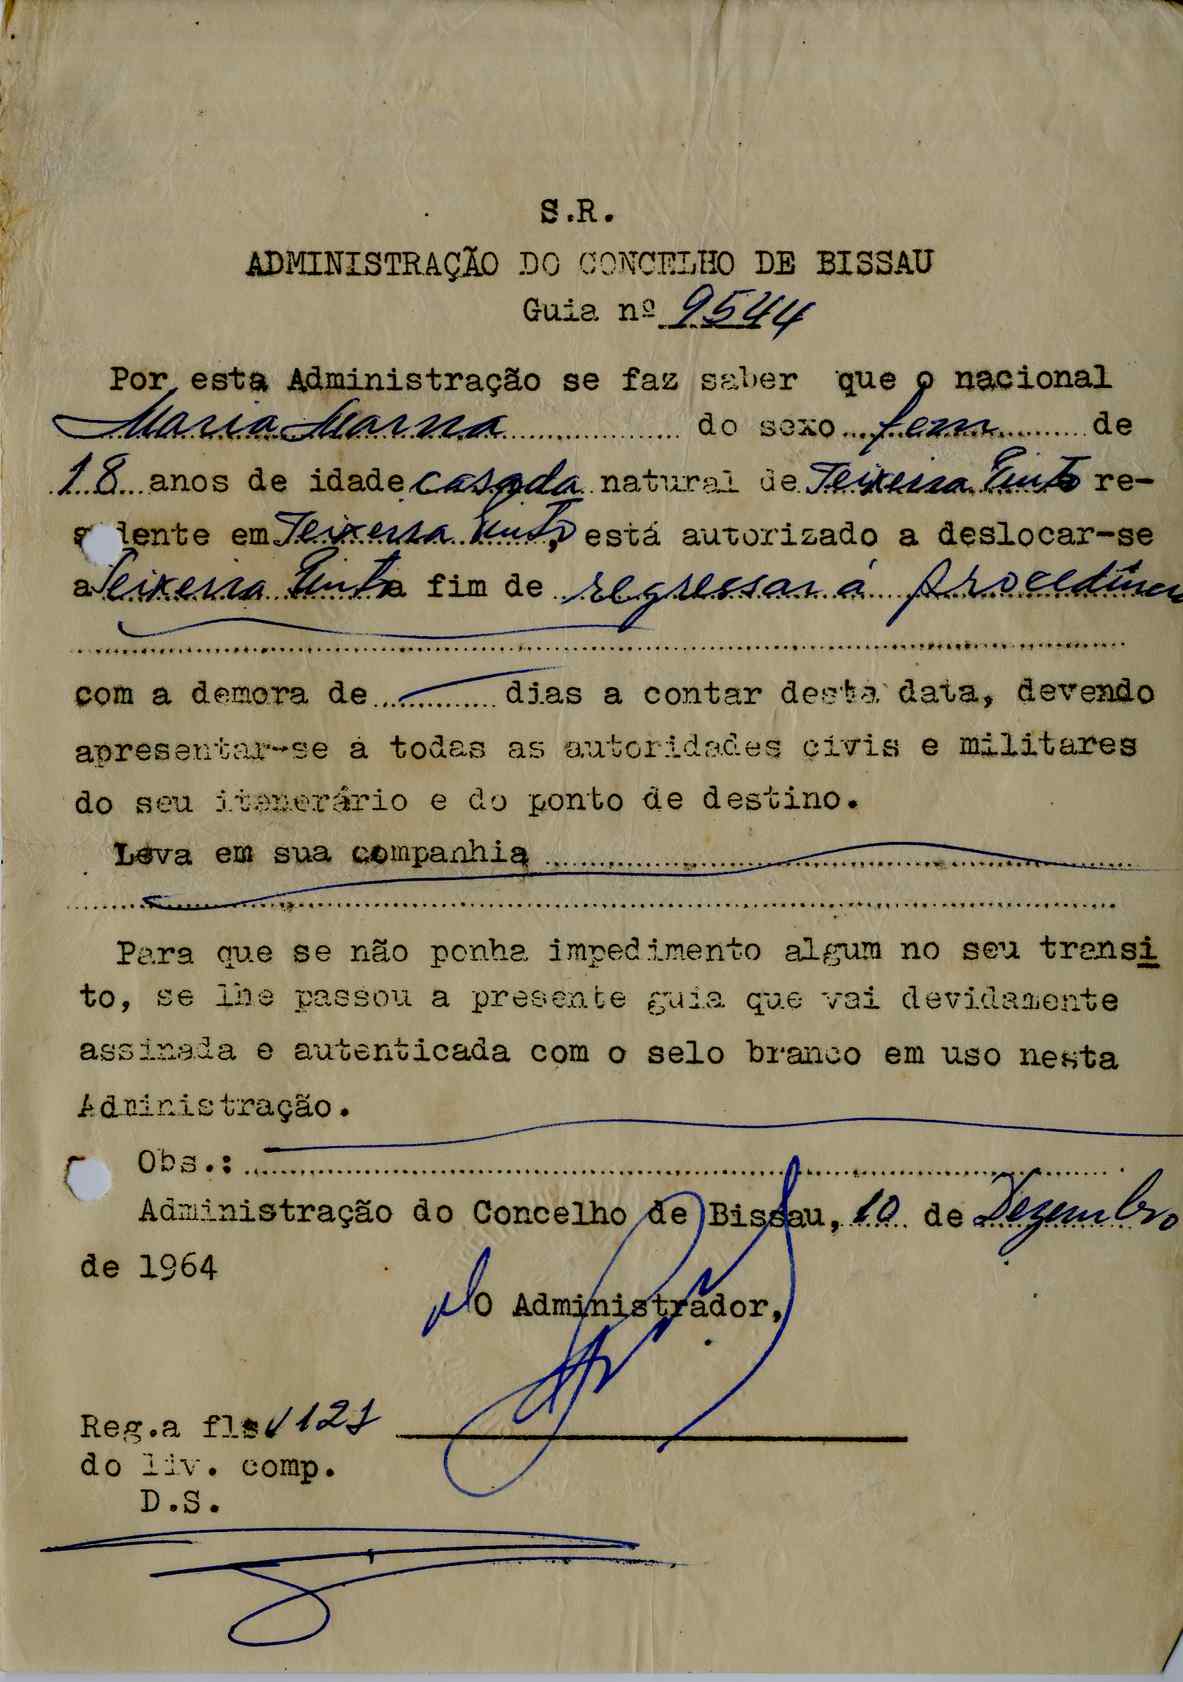 S.R.
ADMINISTRAÇÃO DO CONCELHO DE BISSAU
Guia nº 9544
Por esta Administração se faz saber que o nacional
Maria Marna do sexo fem de
18 anos de idade casada natural de Teixeira Pinto re-
sidente em Teixeira Pinto, está autorizado a deslocar-se
a Teixeira Pinto a fim de regressar á procedência
com a demora de dias a contar desta data, devendo
apresentar-se a todas as autoridades civis e militares
do seu itenerário e do ponto de destino.
Leva em sua companhia
Para que se não ponha impedimento algum no seu transi
to, se lhe passou a presente guia que vai devidamente
assinada e autenticada com o selo branco em uso nesta
Administração.
Obs.:
Administração do Concelho de Bissau, 10 de Dezembro
de 1964
O Administrador,
Reg.a fls 121
do liv. comp.
D.S.